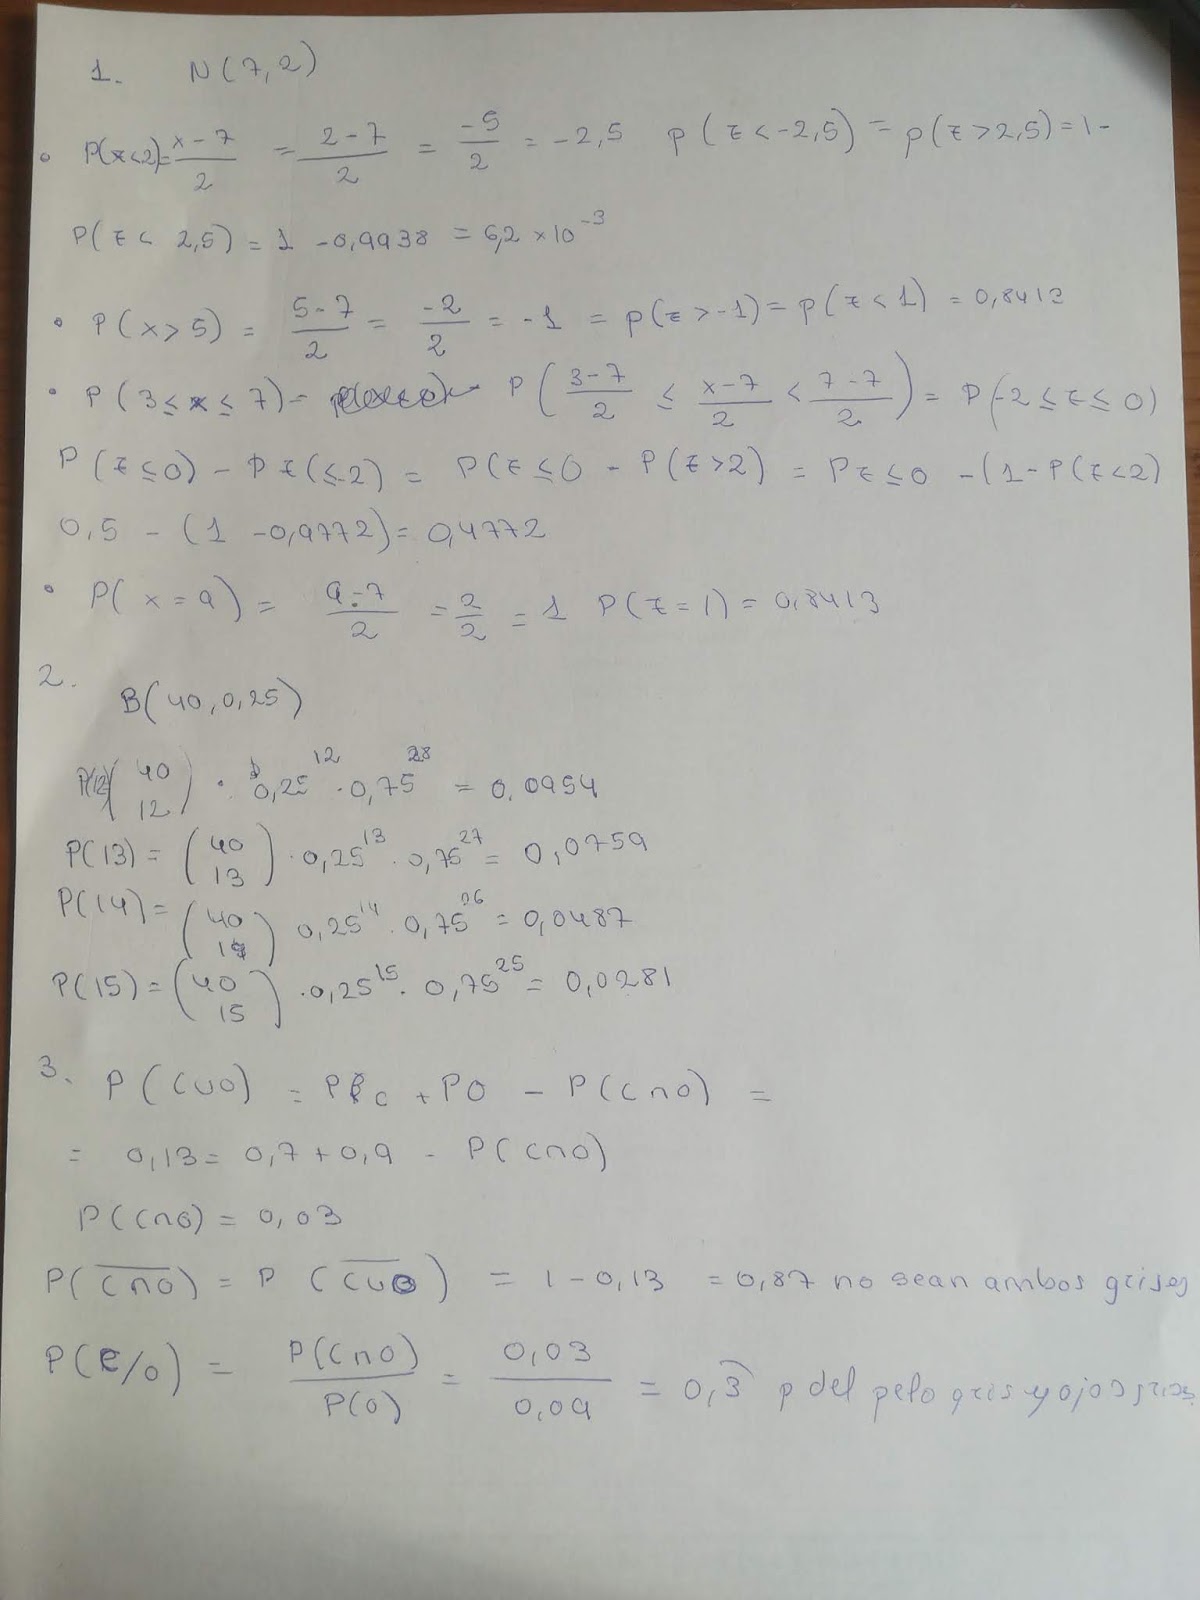 1. N(7,2)
• P(x<2)= x-7/2 = 2-7/2 = -5/2 = -2,5 p(z<-2,5) = p(z>2,5)=1-
P(z< 2,5) = 1 -0,9938 = 6,2 × 10⁻³
• P(x>5) = 5-7/2 = -2/2 = -1 = p(z>-1)= p(z<1) = 0,8413
• P(3≤x≤7)= P(3-7/2 ≤ x-7/2 < 7-7/2) = P(-2≤z≤0)
P(z≤0) - P z(≤-2) = P(z≤0 - P(z>2) = Pz≤0 -(1-P(z<2)
0,5 - (1 -0,9772)= 0,4772
• P(x=9) = 9-7/2 = 2/2 = 1 P(z=1) = 0,8413
2.
B(40,0,25)
P(12)(40 12) · 0,25¹² · 0,75²⁸ = 0,0954
P(13) = (40 13) · 0,25¹³ · 0,75²⁷ = 0,0759
P(14) = (40 14) 0,25¹⁴ · 0,75²⁶ = 0,0487
P(15) = (40 15) · 0,25¹⁵ · 0,75²⁵ = 0,0281
3. P(C∪O) = PC + PO - P(C∩O) =
= 0,13 = 0,7 + 0,9 - P(C∩O)
P(C∩O) = 0,03
P(C̅∩̅O̅) = P(C̅∪̅O̅) = 1-0,13 = 0,87 no sean ambos grises
P(C/O) = P(C∩O)/P(O) = 0,03/0,09 = 0,3̅ p del pelo gris y ojos grises